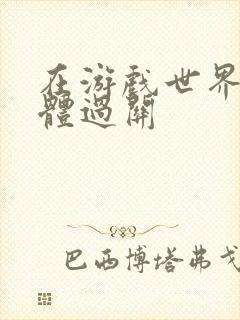 在游戏世界
體過關
巴西博塔弗戈